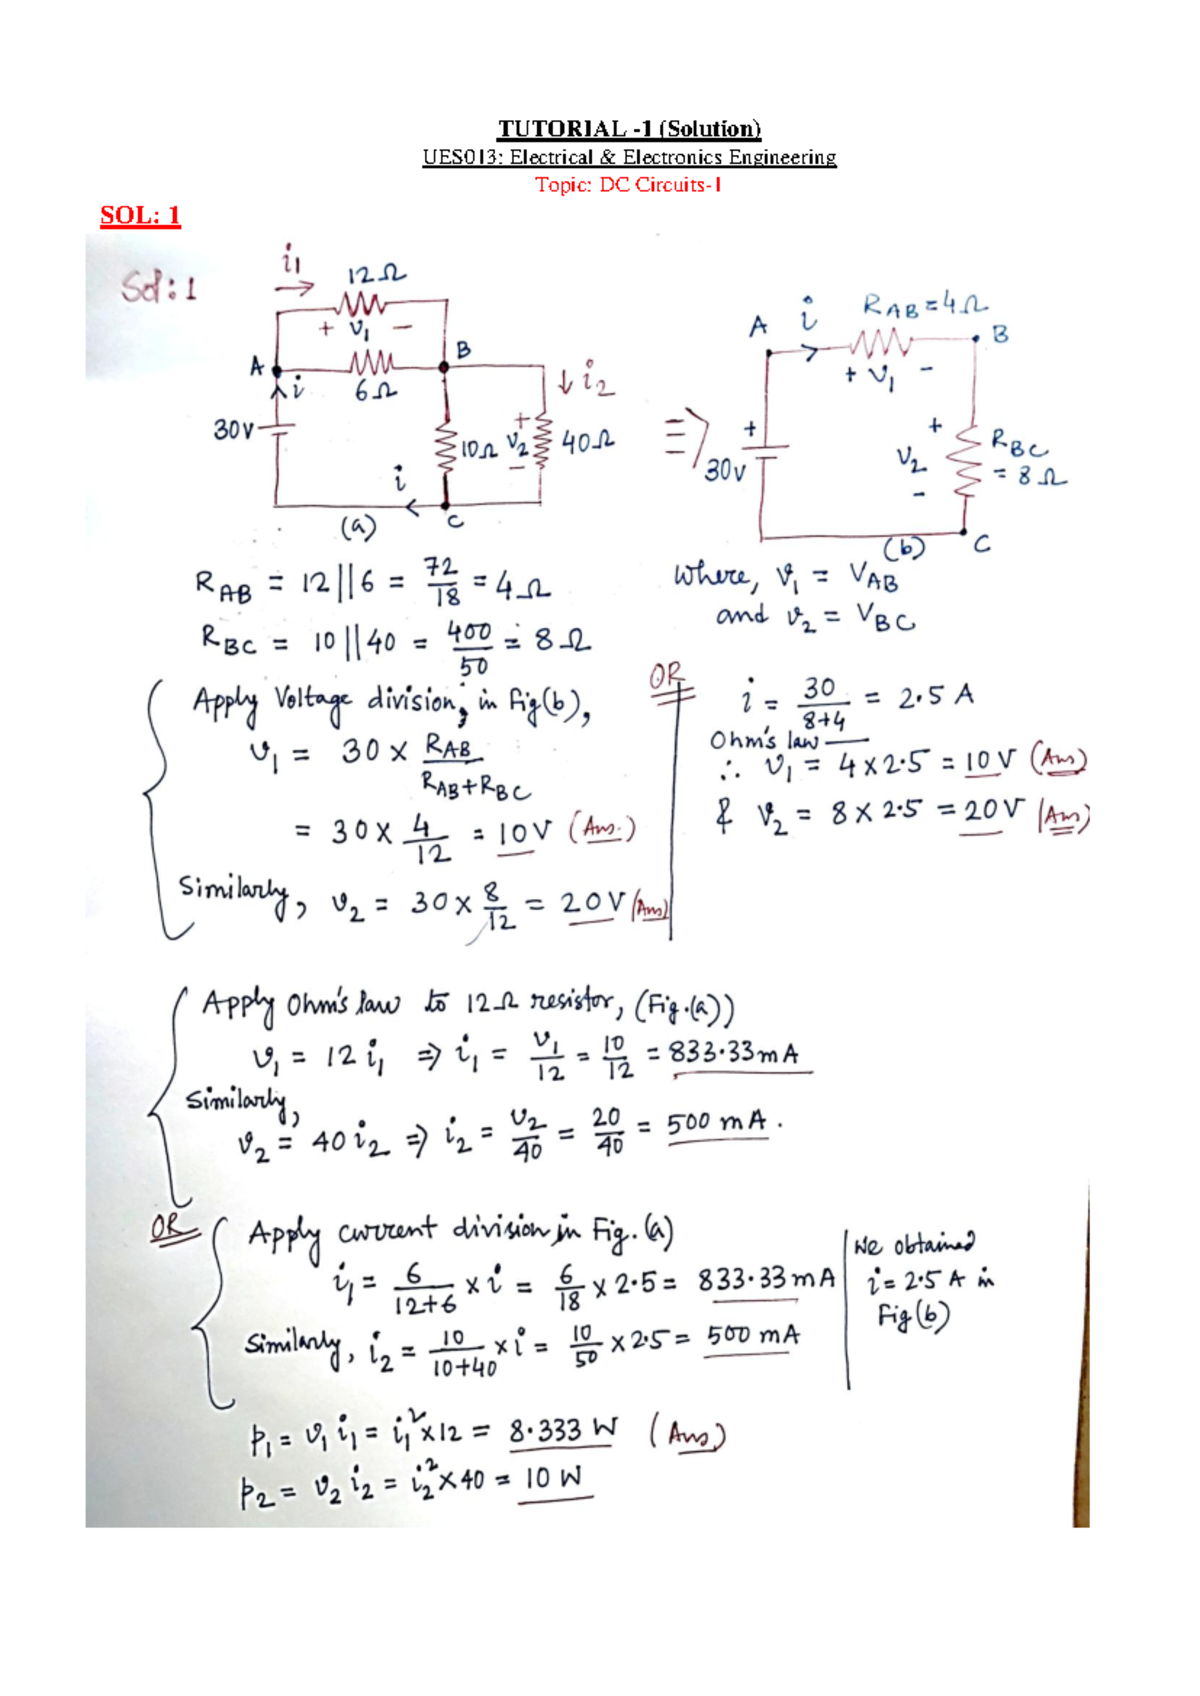 TUTORIAL -1 (Solution)
UES013: Electrical & Electronics Engineering
Topic: DC Circuits-1
SOL: 1
Sol:1
i1
12Ω
+ v1 −
A
B
i
6Ω
↓ i2
30V
10Ω
+ v2 −
40Ω
i
(a)
C
⇒
A
i
RAB=4Ω
B
+ v1 −
+
30V
+ v2 −
RBC = 8Ω
(b)
C
RAB = 12||6 = 72/18 = 4Ω
RBC = 10||40 = 400/50 = 8Ω
where, v1 = VAB
and v2 = VBC
Apply Voltage division, in fig(b),
v1 = 30 × RAB/(RAB+RBC)
= 30 × 4/12 = 10V (Ans.)
Similarly, v2 = 30 × 8/12 = 20V (Ans)
OR
i = 30/(8+4) = 2.5 A
Ohm's law
∴ v1 = 4×2.5 = 10V (Ans)
& v2 = 8×2.5 = 20V (Ans)
Apply Ohm's law to 12Ω resistor, (Fig.(a))
v1 = 12 i1 ⇒ i1 = v1/12 = 10/12 = 833.33mA
Similarly,
v2 = 40 i2 ⇒ i2 = v2/40 = 20/40 = 500 mA.
OR
Apply current division in Fig.(a)
i1 = 6/(12+6) × i = 6/18 × 2.5 = 833.33mA
Similarly, i2 = 10/(10+40) × i = 10/50 × 2.5 = 500 mA
We obtained
i = 2.5 A in
Fig(b)
p1 = v1 i1 = i1²×12 = 8.333 W (Ans)
p2 = v2 i2 = i2²×40 = 10 W